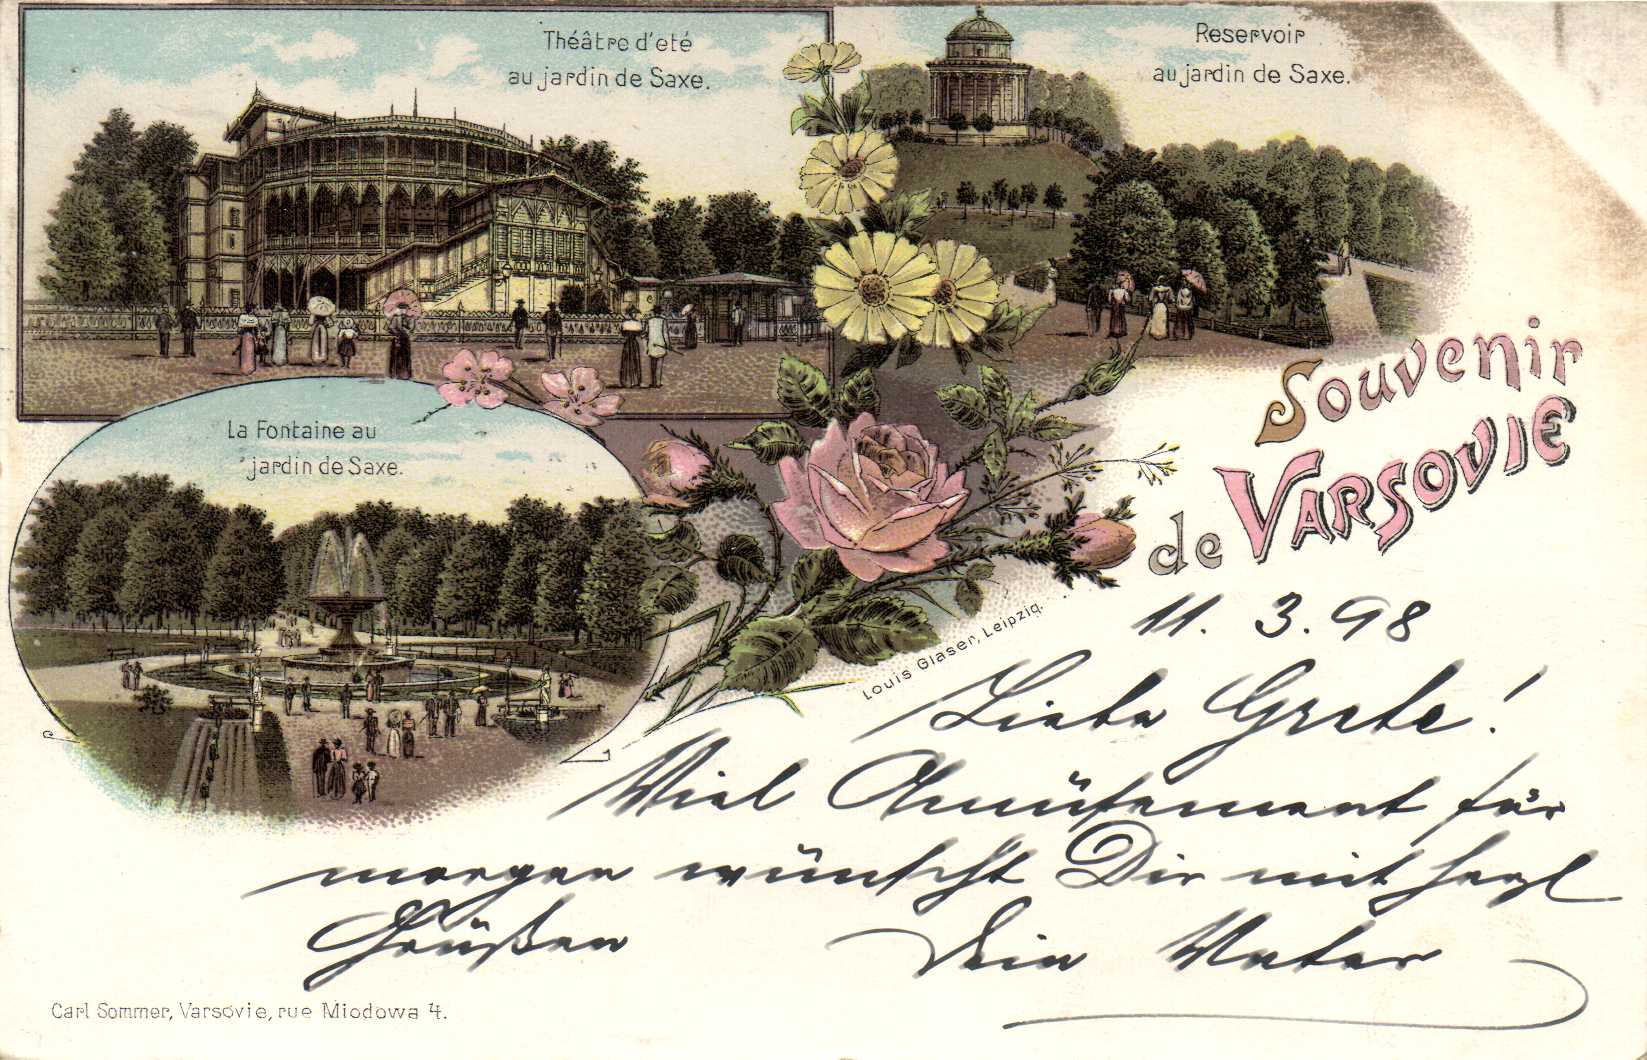 Théâtre d'eté
au jardin de Saxe.
Reservoir
au jardin de Saxe.
La Fontaine au
jardin de Saxe.
Souvenir
de VARSOVIE
Louis Glaser, Leipzig.
11. 3. 98
Liebe Grete!
Viel Amüsement für
morgen wünscht Dir mit herzl
Grüßen Dein Vater
Carl Sommer, Varsovie, rue Miodowa 4.